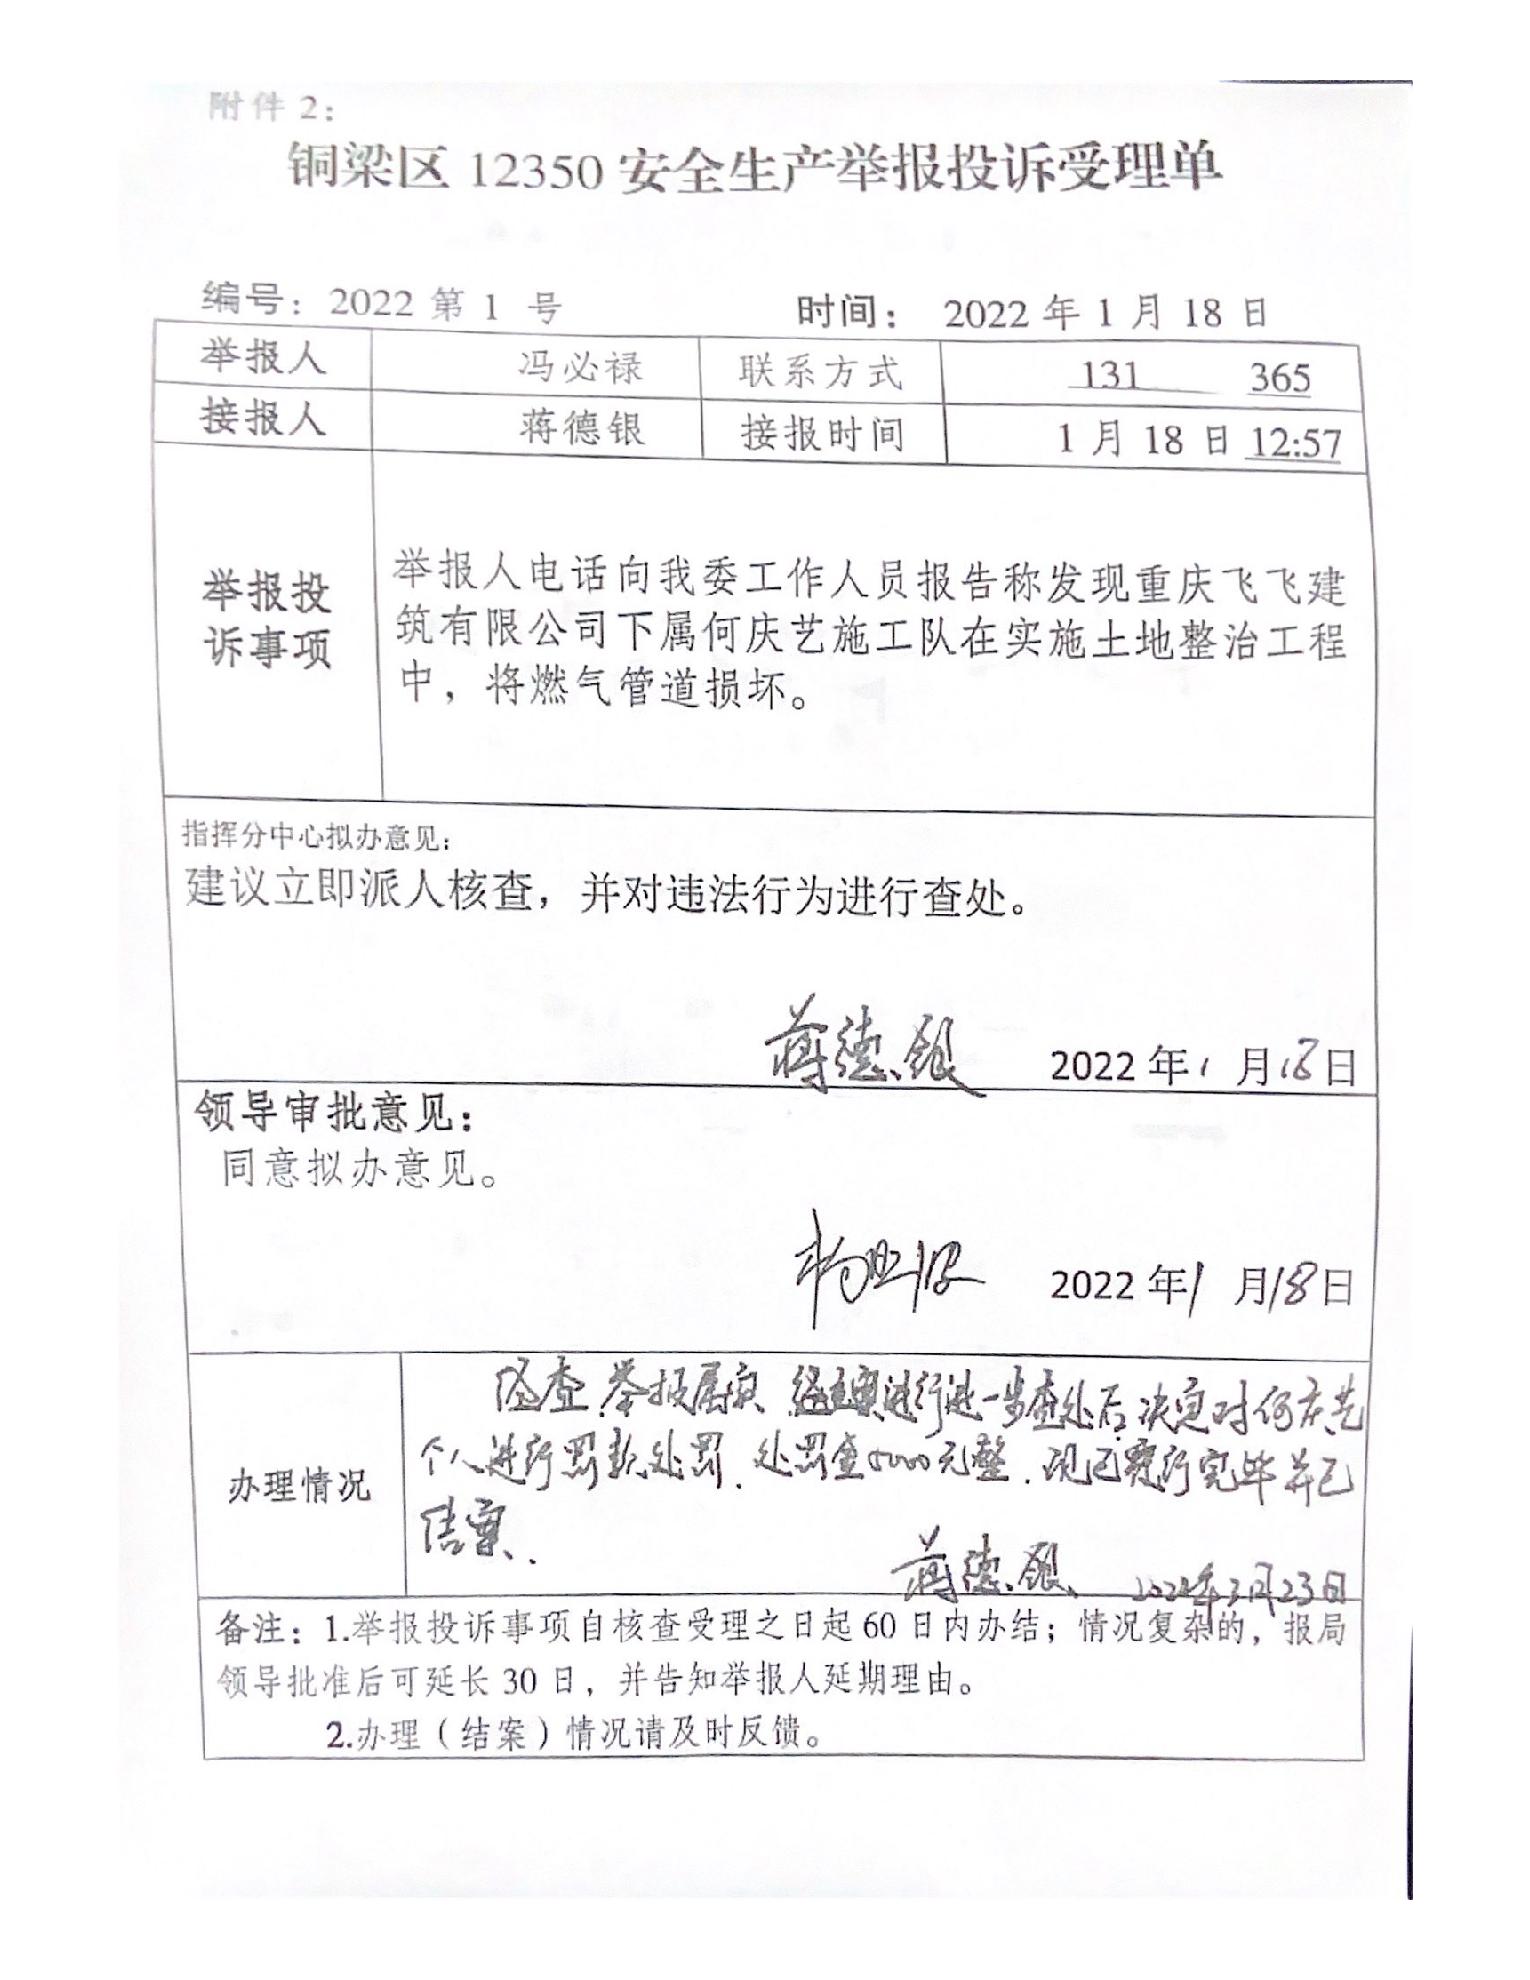 附件 2：
铜梁区 12350 安全生产举报投诉受理单
编号：2022 第 1 号 时间： 2022 年 1 月 18 日
举报人 冯必禄 联系方式 131 365
接报人 蒋德银 接报时间 1 月 18 日 12:57
举报投
诉事项
举报人电话向我委工作人员报告称发现重庆飞飞建
筑有限公司下属何庆艺施工队在实施土地整治工程
中，将燃气管道损坏。
指挥分中心拟办意见：
建议立即派人核查，并对违法行为进行查处。
蒋德银 2022 年 1 月 18 日
领导审批意见：
同意拟办意见。
2022 年 1 月 18 日
办理情况
经查,举报属实,经立案进行进一步查处后,决定对何庆艺
个人进行罚款处罚,处罚金5000元整.现已履行完毕并已
结案.
蒋德银 2022年3月23日
备注：1.举报投诉事项自核查受理之日起 60 日内办结；情况复杂的，报局
领导批准后可延长 30 日，并告知举报人延期理由。
2.办理（结案）情况请及时反馈。